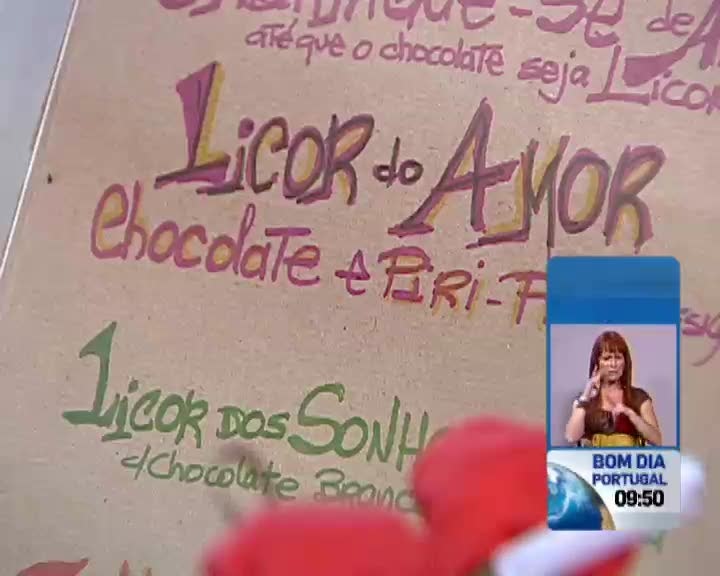 -se de
até que o chocolate seja Licor
Licor do Amor
Chocolate e Piri-P
Licor dos Sonh
c/chocolate Branc
BOM DIA
PORTUGAL
09:50